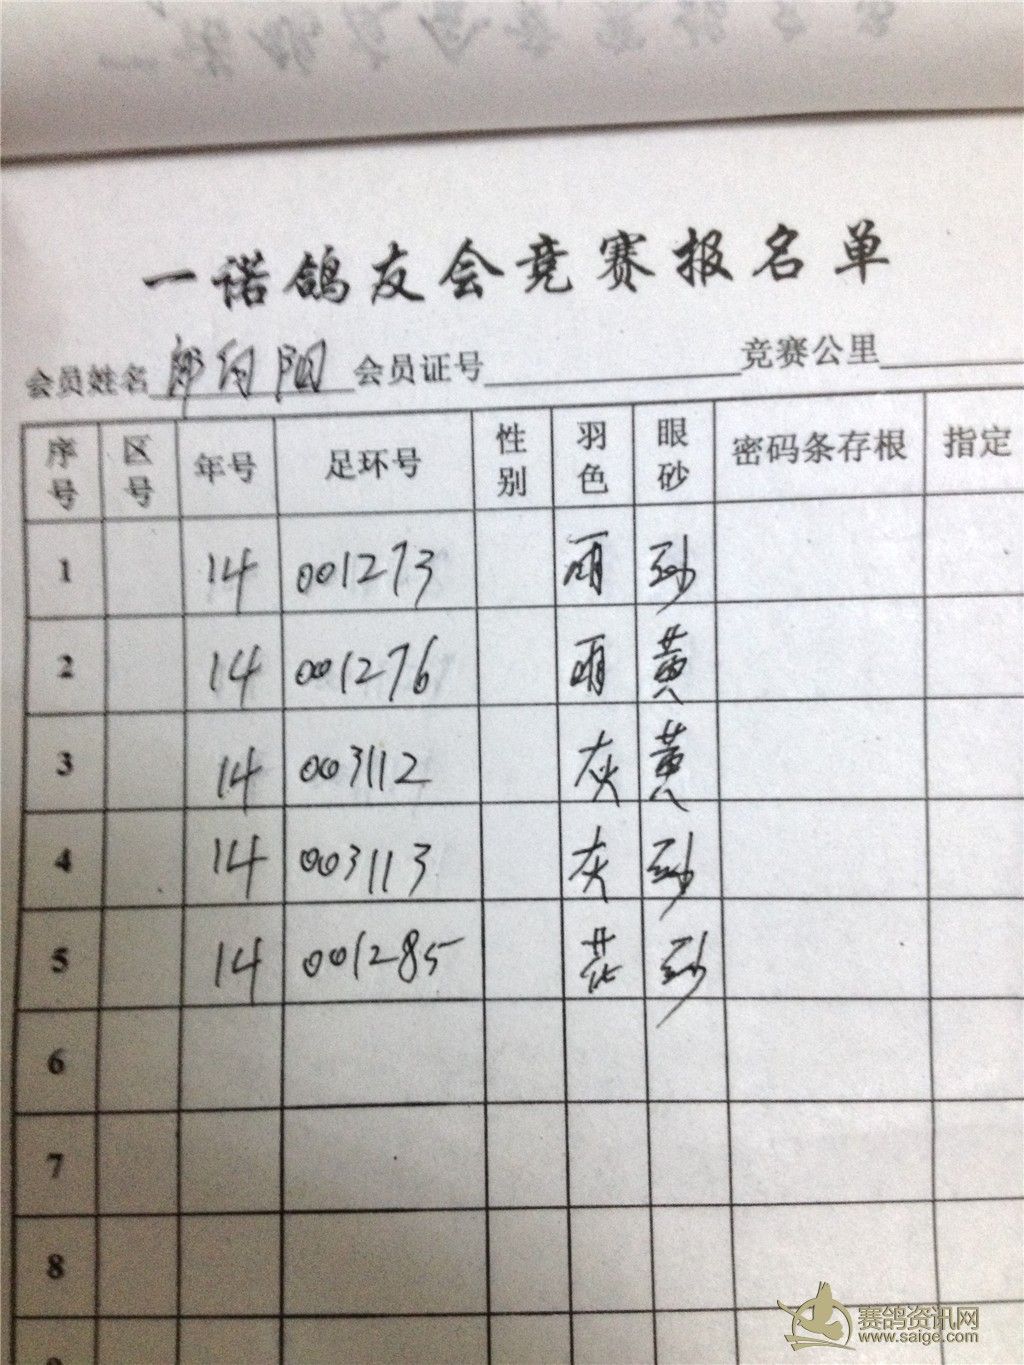 一诺鸽友会竞赛报名单
会员姓名 郎向阳 会员证号 竞赛公里
序号 区号 年号 足环号 性别 羽色 眼砂 密码条存根 指定
1 14 001273 雨 砂
2 14 001276 雨 黄
3 14 003112 灰 黄
4 14 003113 灰 砂
5 14 001285 花 砂
6
7
8
赛鸽资讯网
www.saige.com